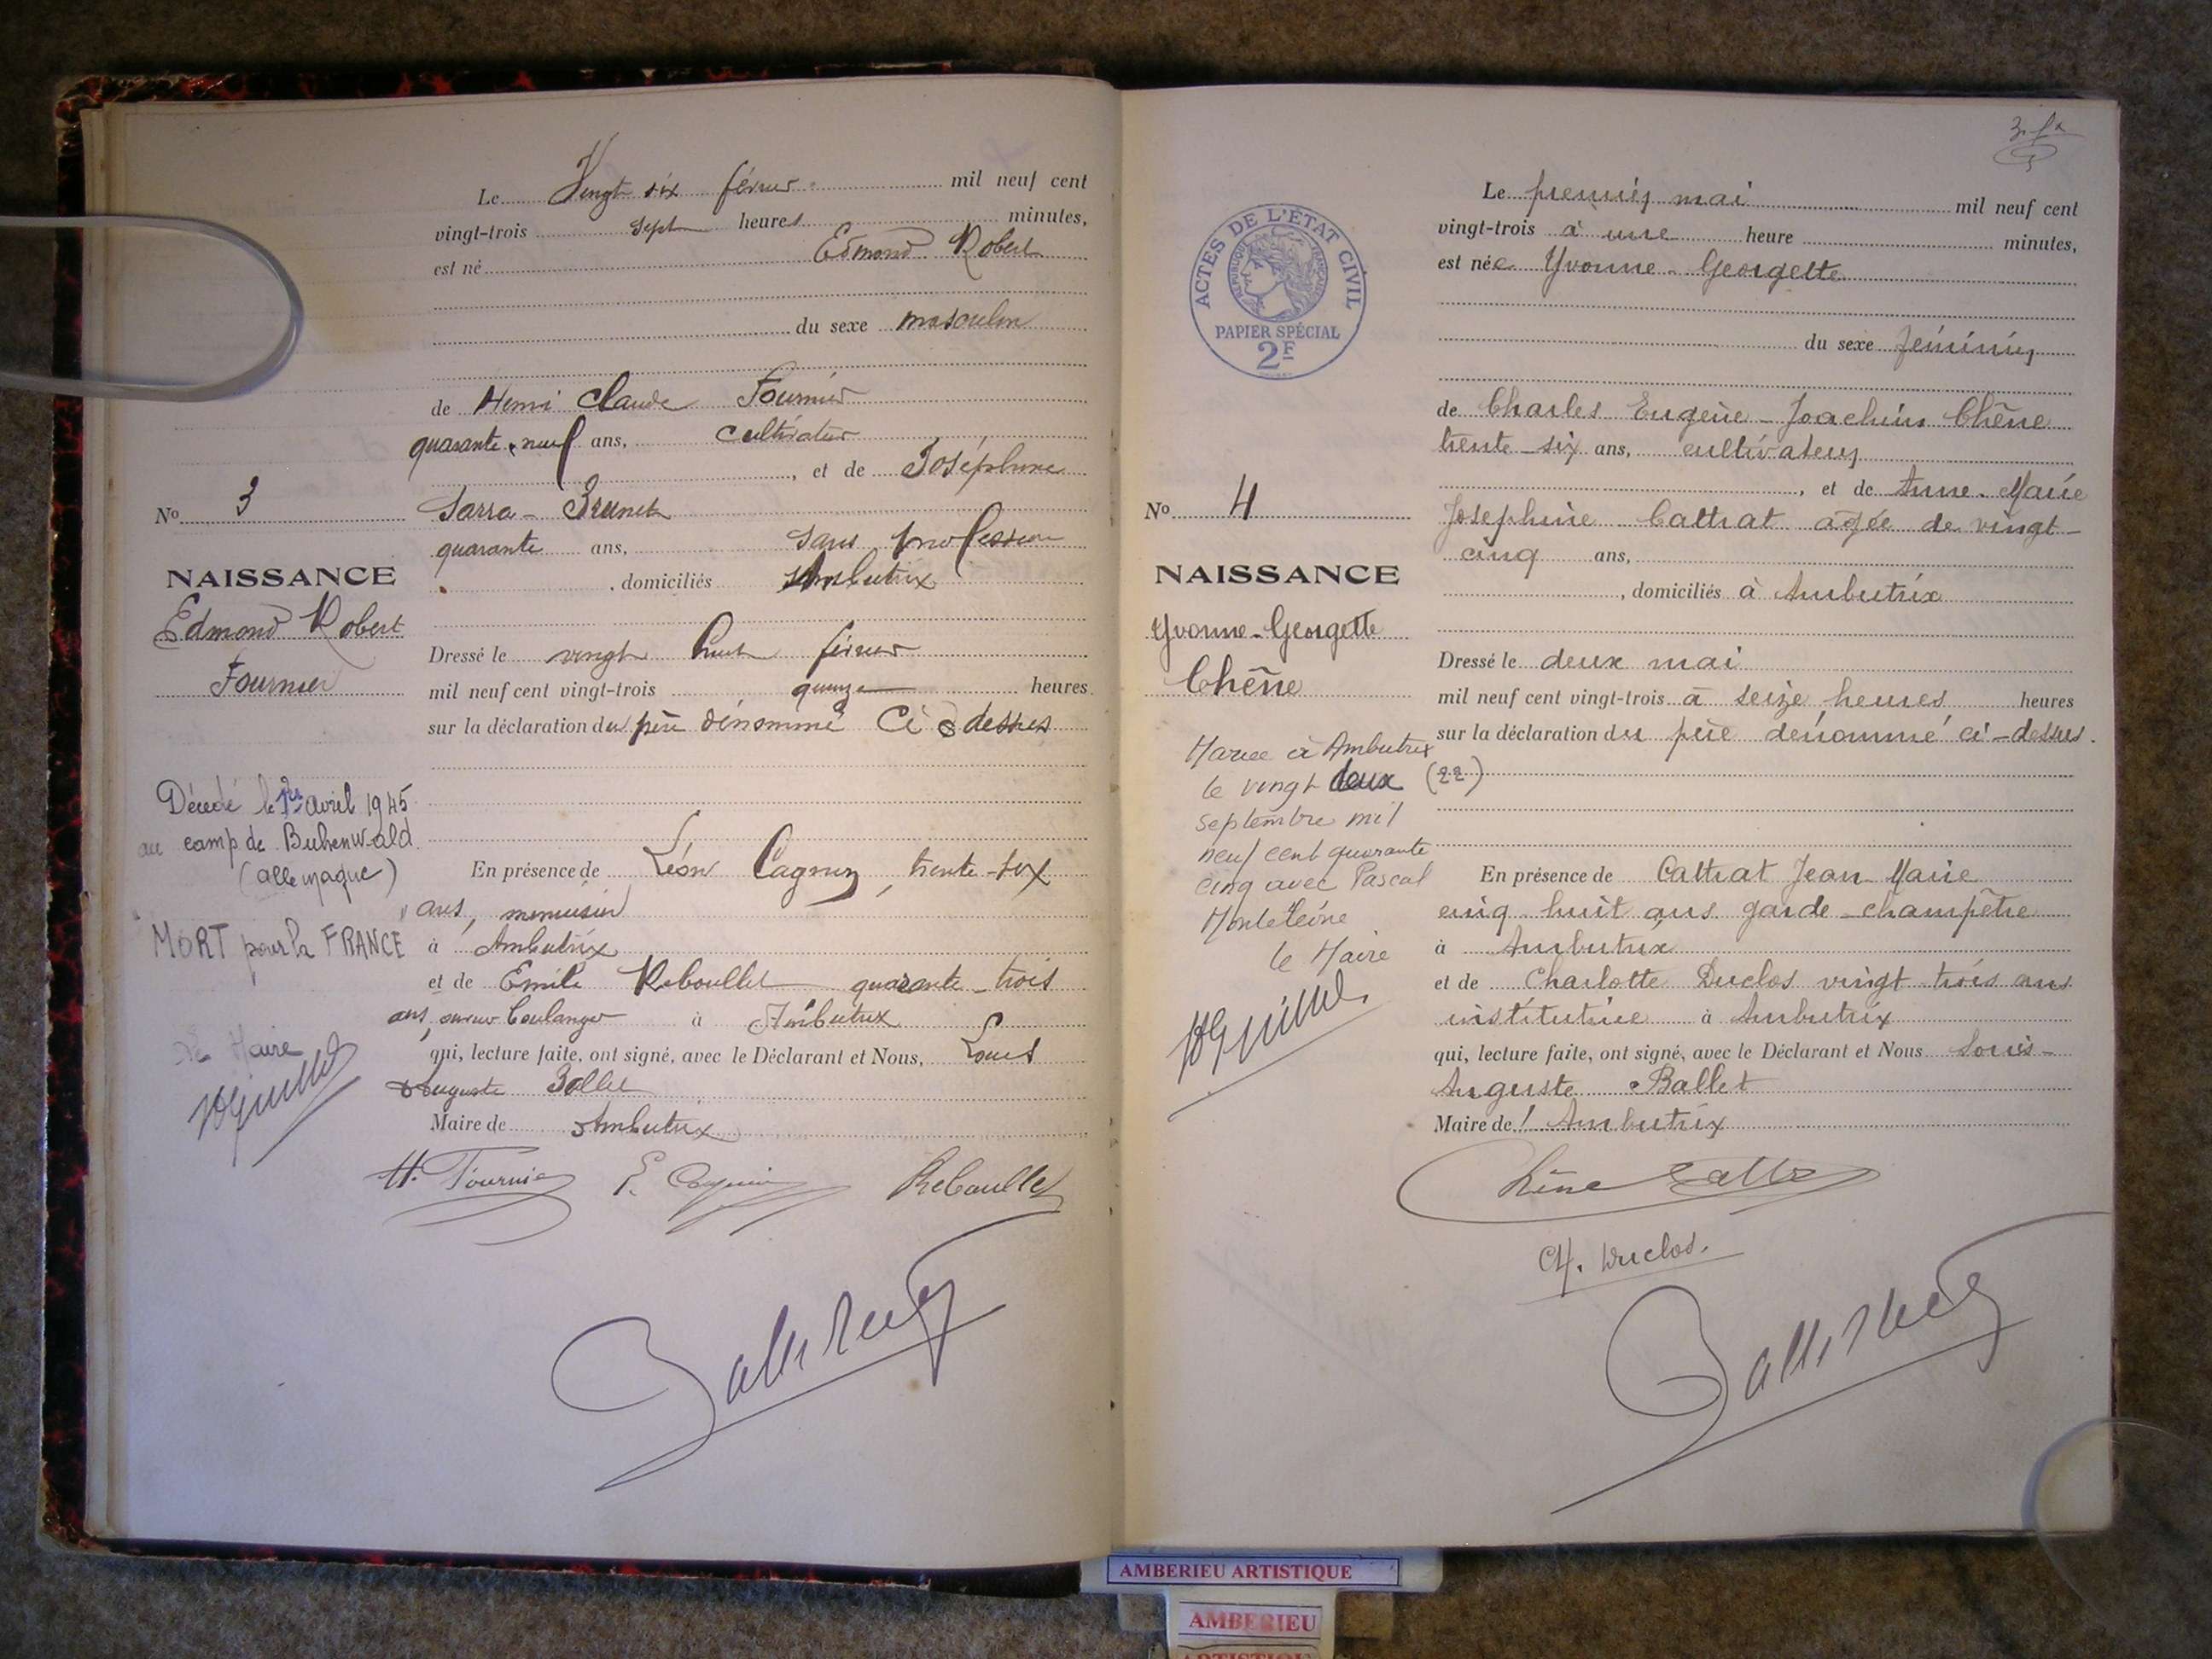 Le Vingt six février mil neuf cent
vingt-trois sept heures minutes,
est né Edmond Robert
du sexe masculin
de Henri Claude Fournier
quarante neuf ans, cultivateur
, et de Joséphine
Sarra Brunet
quarante ans, sans profession
, domiciliés Ambutrix
Dressé le vingt huit février
mil neuf cent vingt-trois quinze heures
sur la déclaration du père dénommé Ci dessus
En présence de Léon Cagnin, trente-six
ans, menuisier
à Ambutrix
et de Emile Reboullet quarante-trois
ans, ouvrier boulanger à Ambutrix
qui, lecture faite, ont signé, avec le Déclarant et Nous, Louis
Auguste Ballet
Maire de Ambutrix
H. Fournier
Reboullet
No 3
NAISSANCE
Edmond Robert
Fournier
Décédé le 1er avril 1945
au camp de Buhenwald
(allemagne)
MORT pour la FRANCE
Le Maire
ACTES DE L'ÉTAT CIVIL
RÉPUBLIQUE FRANÇAISE
PAPIER SPÉCIAL
2F
No 4
NAISSANCE
Yvonne-Georgette
Chêne
Mariée à Ambutrix
le vingt deux (22)
septembre mil
neuf cent quarante
cinq avec Pascal
Monteleone
le Maire
Le premier mai mil neuf cent
vingt-trois à une heure minutes,
est née Yvonne-Georgette
du sexe féminin
de Charles Eugène-Joachim Chêne
trente-six ans, cultivateur
, et de Anne-Marie
Josephine Cattrat agée de vingt-
cinq ans,
, domiciliés à Ambutrix
Dressé le deux mai
mil neuf cent vingt-trois à seize heures heures
sur la déclaration du père dénommé ci-dessus.
En présence de Cattrat Jean Marie
cinq huit ans garde-champêtre
à Ambutrix
et de Charlotte Duclos vingt trois ans
institutrice à Ambutrix
qui, lecture faite, ont signé, avec le Déclarant et Nous Louis-
Auguste Ballet
Maire de Ambutrix
Chêne
Ch. Duclos.
AMBERIEU ARTISTIQUE
AMBERIEU
ARTISTIQUE